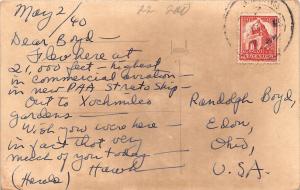 May 2/40
22 200
Dear Boyd -
Flew here at
21,000 feet - highest
in commercial aviation -
in new PAA Strato Ship -
Out to Xochmilco
gardens -
Wish you were here
in fact that very
much of you today
(Harold) Hawk
Randolph Boyd,
Edon,
Ohio,
U.S.A.